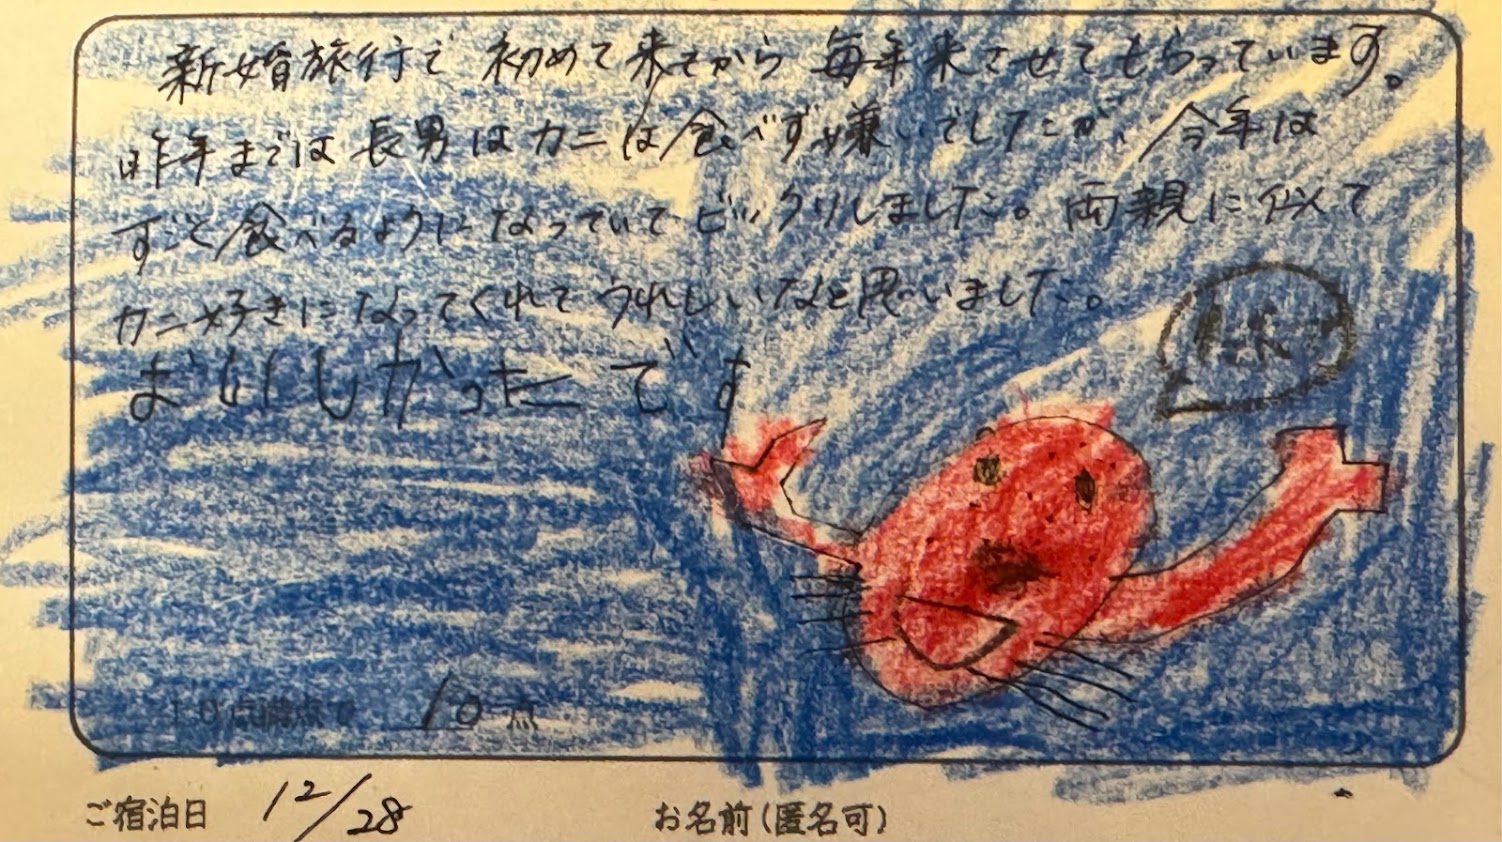 新婚旅行で初めて来てから毎年来させてもらっています。
昨年までは長男はカニは食べず嫌いでしたが、今年は
すごく食べるようになっていてビックリしました。両親に似て
カニ好きになってくれてうれしいなと思いました。
おいしかったです
10点満点で 10 点
ご宿泊日 12/28 お名前(匿名可)